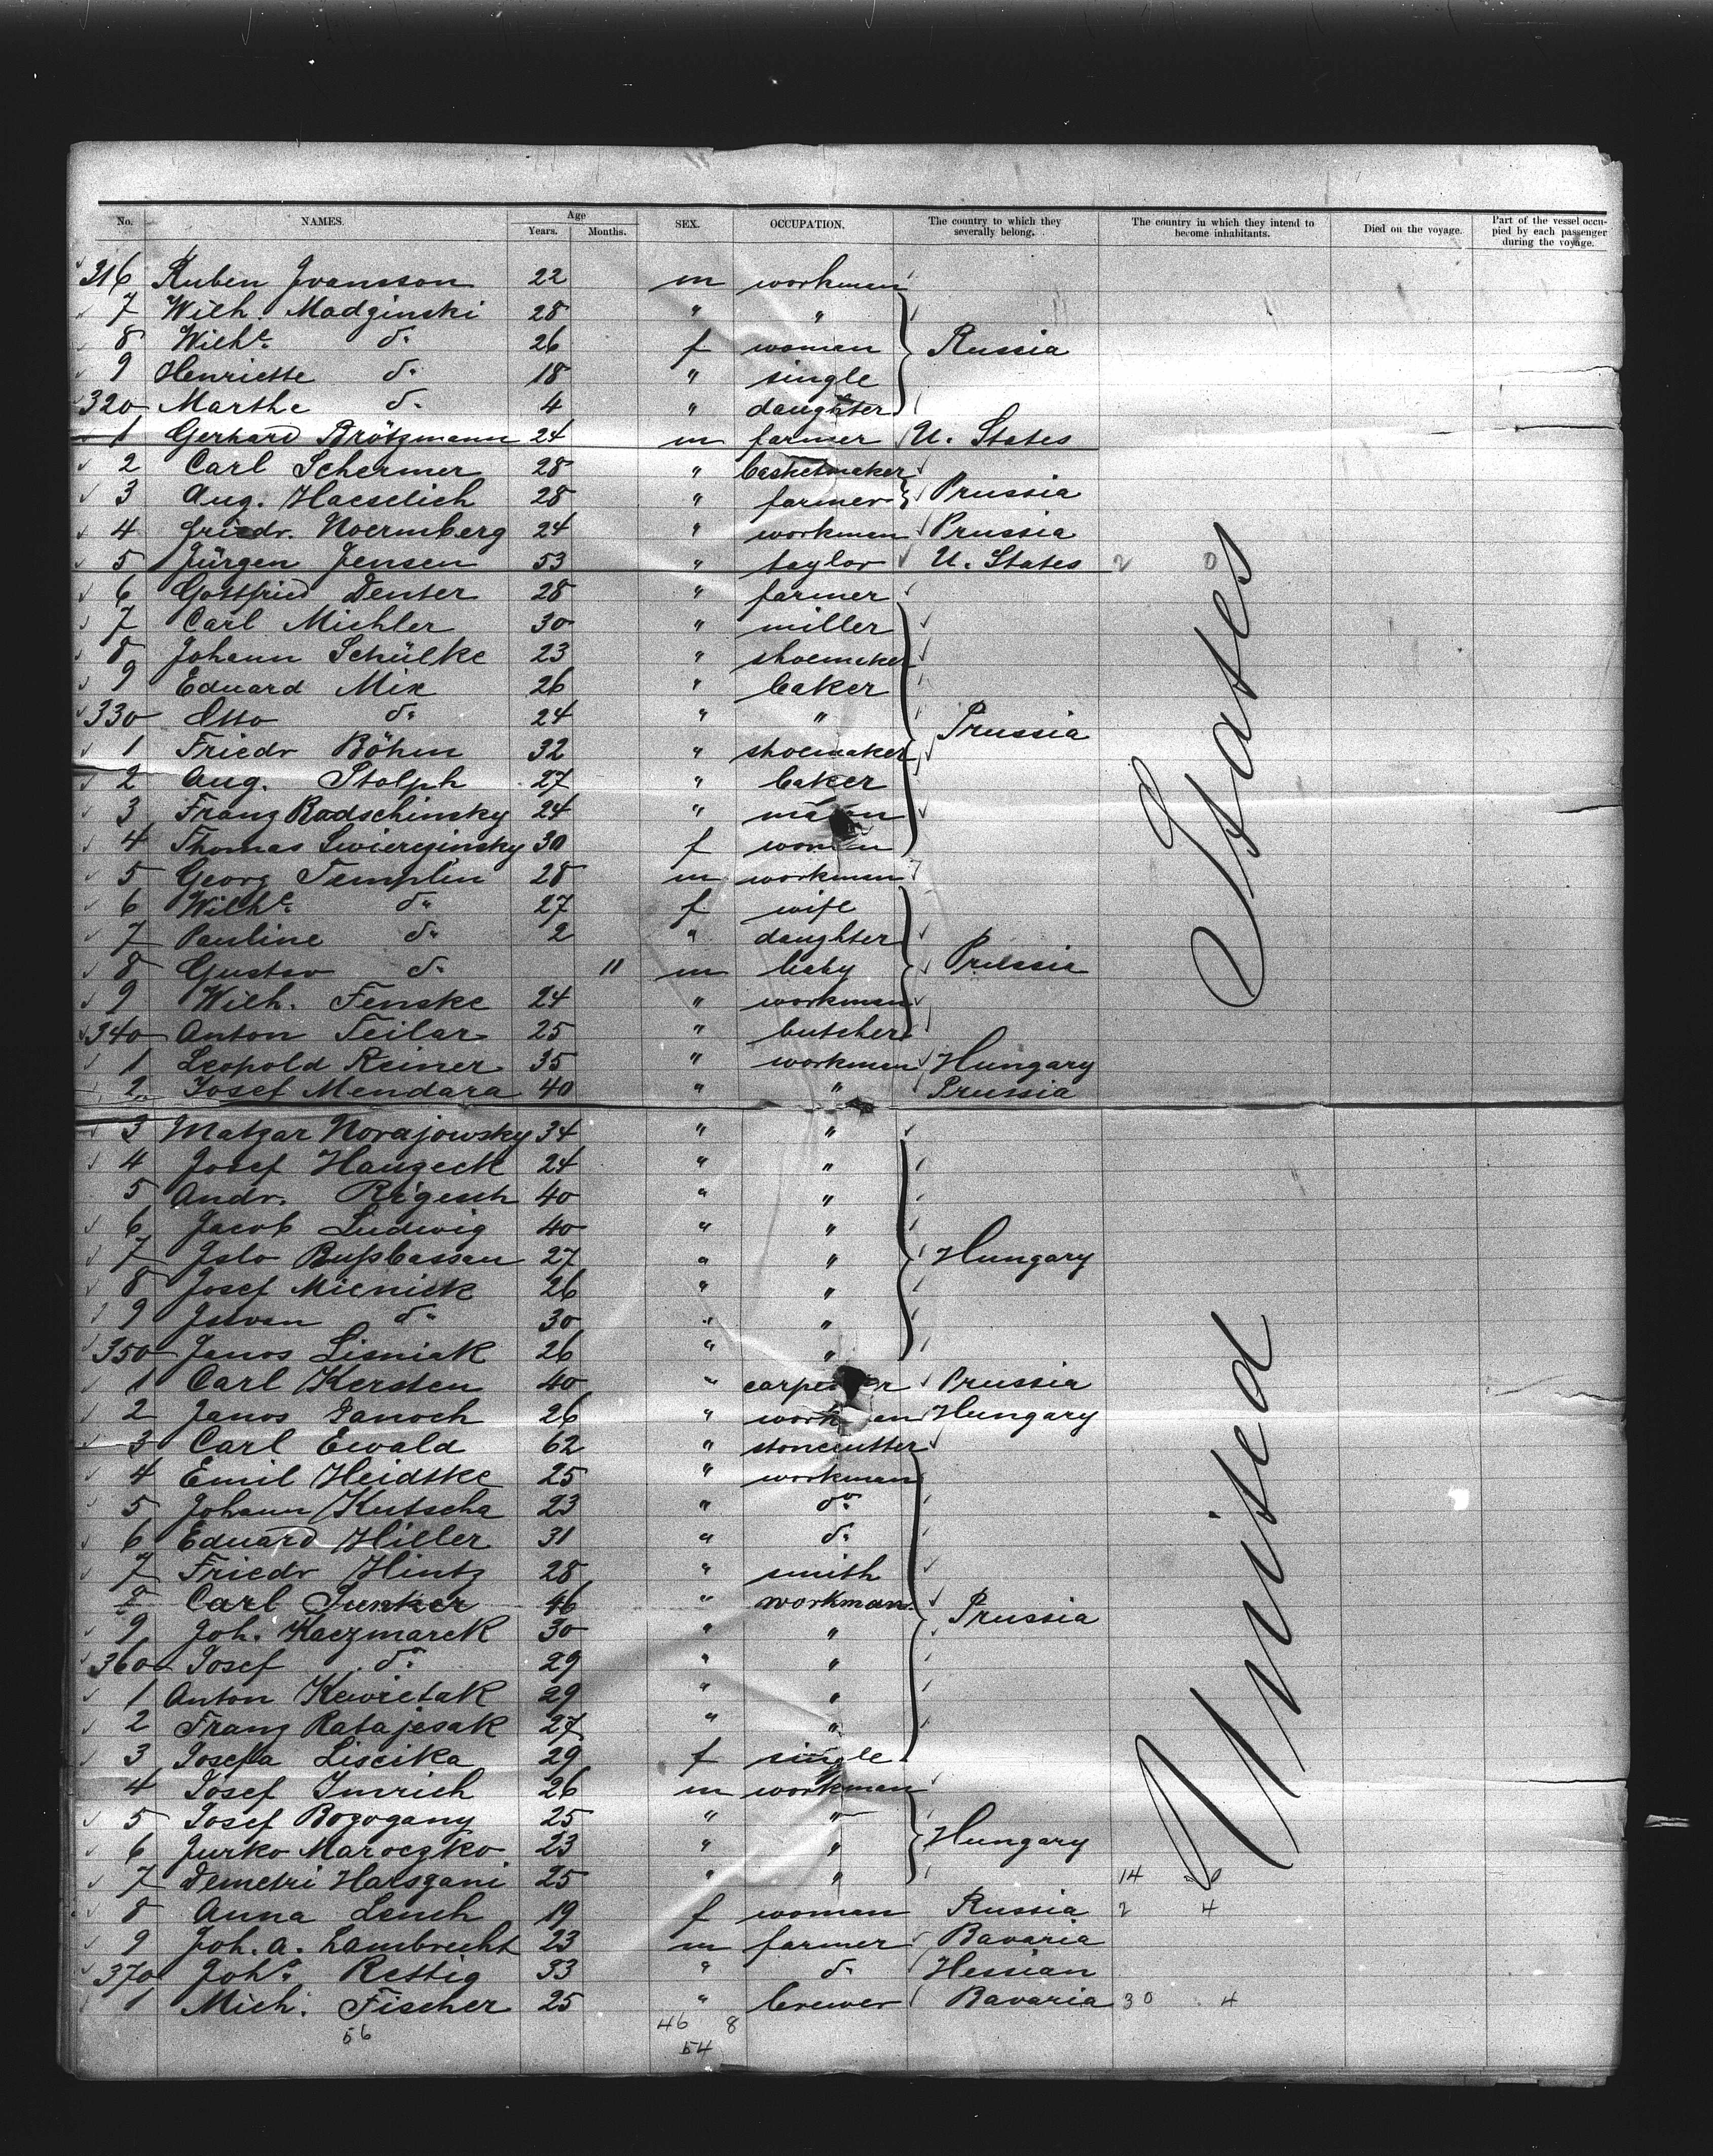 No. NAMES. Age Years. Months. SEX. OCCUPATION. The country to which they severally belong. The country in which they intend to become inhabitants. Died on the voyage. Part of the vessel occupied by each passenger during the voyage.
316 Ruben Ivansson 22 m workman
7 Wilh. Madginski 28 " "
8 Wilhe. do. 26 f woman Russia
9 Henriette do. 18 " single
320 Marthe do. 4 " daughter
1 Gerhard Brötzmann 24 m farmer U. States
2 Carl Schermer 28 " basketmaker
3 Aug. Haeselich 28 " farmer Prussia
4 Friedr. Noermberg 24 " workman Prussia
5 Jürgen Jensen 53 " taylor U. States 2 0
6 Gottfried Denter 28 " farmer
7 Carl Michler 30 " miller
8 Johann Schülke 23 " shoemaker
9 Eduard Mix 26 " baker
330 Otto do. 24 " " Prussia
1 Friedr Böhm 32 " shoemaker
2 Aug. Stolph 27 " baker
3 Franz Radschinsky 24 " mason
4 Thomas Swiereginsky 30 f woman
5 Georg Templin 28 m workman
6 Wilhe. do. 27 f wife
7 Pauline do. 2 " daughter
8 Gustav do. 11 m baby Prussia
9 Wilh. Fenske 24 " workman
340 Anton Teilar 25 " butcher
1 Leopold Reiner 35 " workman Hungary
2 Josef Mendara 40 " " Prussia
3 Matzar Norajowsky 34 " "
4 Josef Haugeck 24 " "
5 Andr. Rigesch 40 " "
6 Jacob Ludwig 40 " "
7 Islo Bußbassan 27 " " Hungary
8 Josef Mienick 26 " "
9 do. 30 " "
350 Janos Lisniak 26 " "
1 Carl Kersten 40 " carpenter Prussia
2 Janos Janoch 26 " workman Hungary
3 Carl Ewald 62 " stonecutter
4 Emil Heidtke 25 " workman
5 Johann Kutscha 23 " do.
6 Eduard Hiller 31 " do.
7 Friedr Hintz 28 " smith
8 Carl Junker 46 " workman Prussia
9 Joh. Kaczmarek 30 " "
360 Josef do. 29 " "
1 Anton Kewietak 29 " "
2 Franz Ratajesak 27 " "
3 Josefa Liscika 29 f single
4 Josef Imrich 26 m workman
5 Josef Bozogany 25 " "
6 Jurko Maroczko 23 " " Hungary
7 Demetri Harsgani 25 " " 14
8 Anna Lench 19 f woman Russia 2 4
9 Joh. A. Lambrecht 23 m farmer Bavaria
370 Joha. Rettig 33 " do. Hessian
1 Mich. Fischer 25 " brewer Bavaria 30 4
56 46 8
54
United States